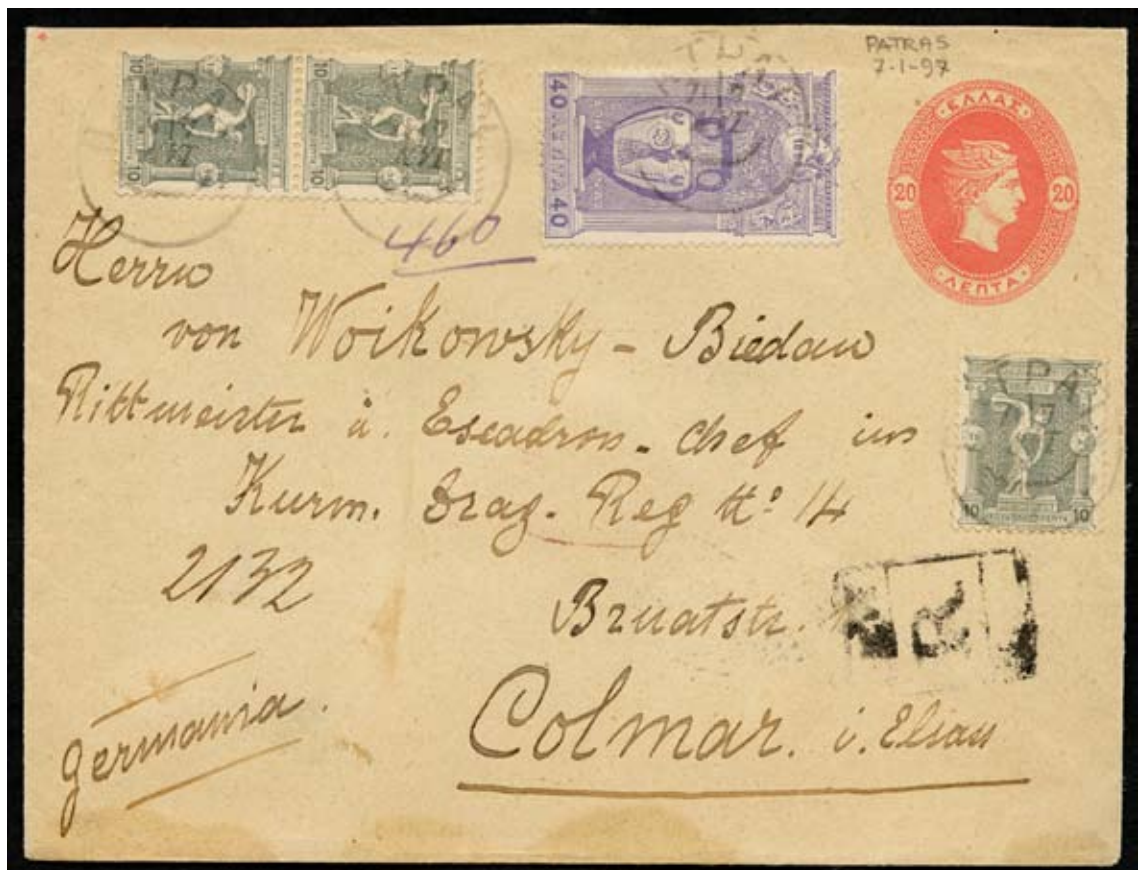 PATRAS
7-1-97
10 10
10 10
40 ΛΕΠΤΑ 40
ΕΛΛΑΣ
20 20
ΛΕΠΤΑ
460
Herrn
von Woikowsky - Biedau
Rittmeister u. Escadron - Chef im
Kurm. Drag. Reg No 14
2132
Bruatstr.
R
Colmar. i. Elsass
Germania.
10 10